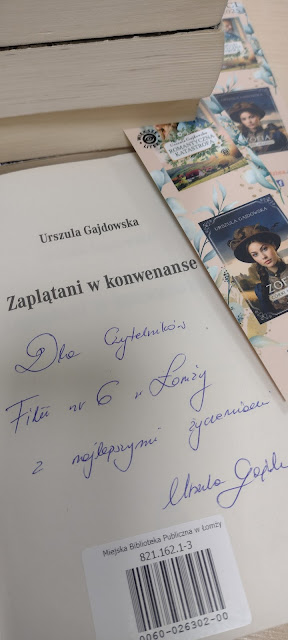 Urszula Gajdowska
Zaplątani w konwenanse
Dla Czytelników
Filii nr 6 w Łomży
z najlepszymi życzeniami
Urszula
Miejska Biblioteka Publiczna w Łomży
821.162.1-3
0060-026302-00
ROMANTYCZNA
KATASTROFA
URSZULA GAJDOWSKA